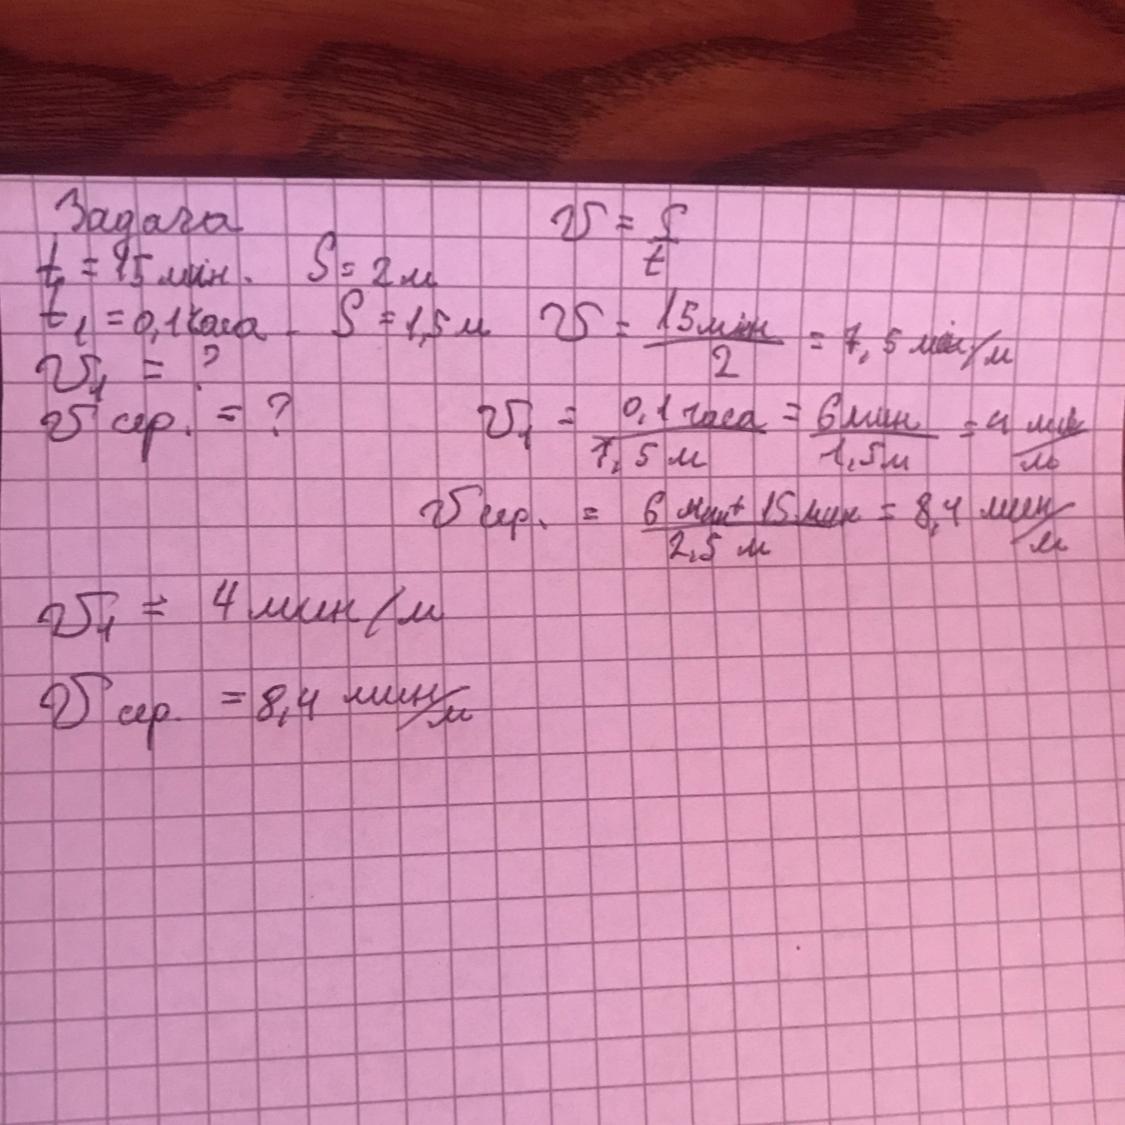 Задача
t₁ = 15 мин. S = 2 м
t₁ = 0,1 часа S = 1,5 м
V₁ = ?
V сер. = ?
V = S/t
V = 15 мин/2 = 7,5 мин/м
V₁ = 0,1 часа/1,5 м = 6 мин/1,5 м = 4 мин/м
V сер. = 6 мин + 15 мин/2,5 м = 8,4 мин/м
V₁ = 4 мин/м
V сер. = 8,4 мин/м